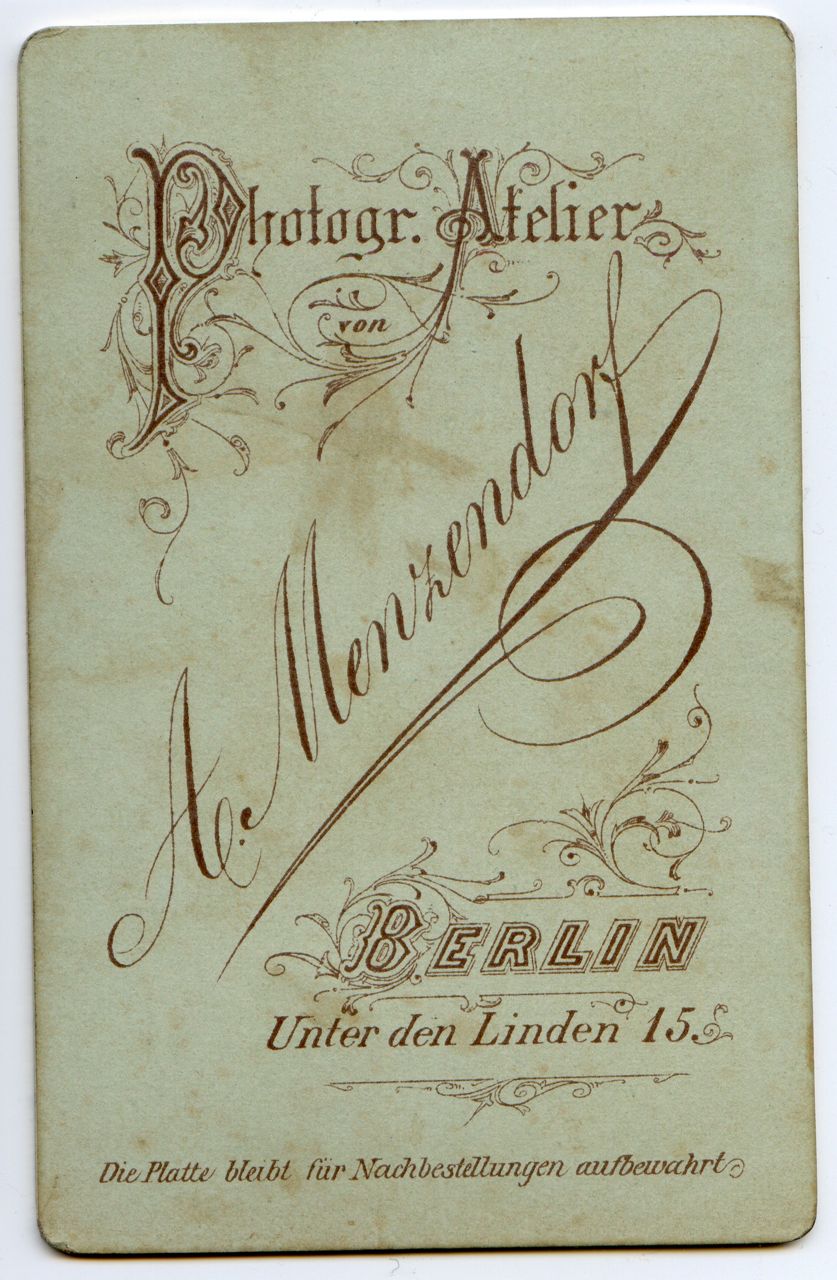 Photogr. Atelier
von
A. Menzendorf
BERLIN
Unter den Linden 15.
Die Platte bleibt für Nachbestellungen aufbewahrt